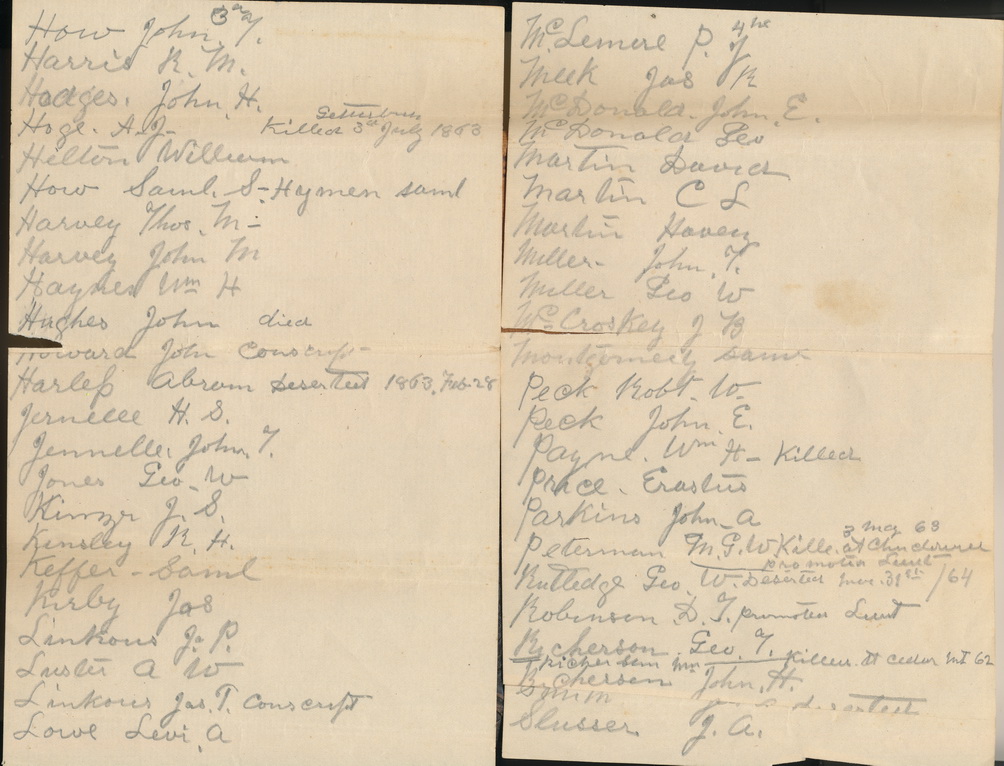 3rd
How John, T.
Harris R. M.
Hodges. John, H.
Hoge. A. J. Killed 3rd July 1863
Gettisburg
Hilton William
How Saml. S- Haymen saml
Harvey Thos. M-
Harvey John M
Haynes Wm H
Hughes John died
Howard John Conscript-
Harless Abram Deserted 1863, Feb. 28
Jernelle H. S.
Jennelle. John, T.
Jones Geo. W
Kinzer J. S.
Kinsley R. H.
Keffer - Saml
Kirby Jas
Linkous J. P.
Luster A W
Linkous Jas. T. Conscript
Lowe Levi, A
4th
McLemere P. J
Meek Jas R
McDonald. John, E.
McDonald Geo
Martin David
Martin C L
Martin Haven
Miller- John, T.
Miller Geo W
McCroskey J B
Montgomery Saml
Peck Robt. W-
Peck John, E.
Payne. Wm H- Killed
Price. Erastus
Parkins John- A
3 May 63
Peterman M. G. W Kille. at
promoted Lieut
Rutledge Geo, W- Deserted Mar. 31st /64
Robinson D. T. promoted Lieut
Richerson. Geo. T. Killed. at cedar Mt 62
Wm
Richerson John, H.
deserted
Slusser. J. A.